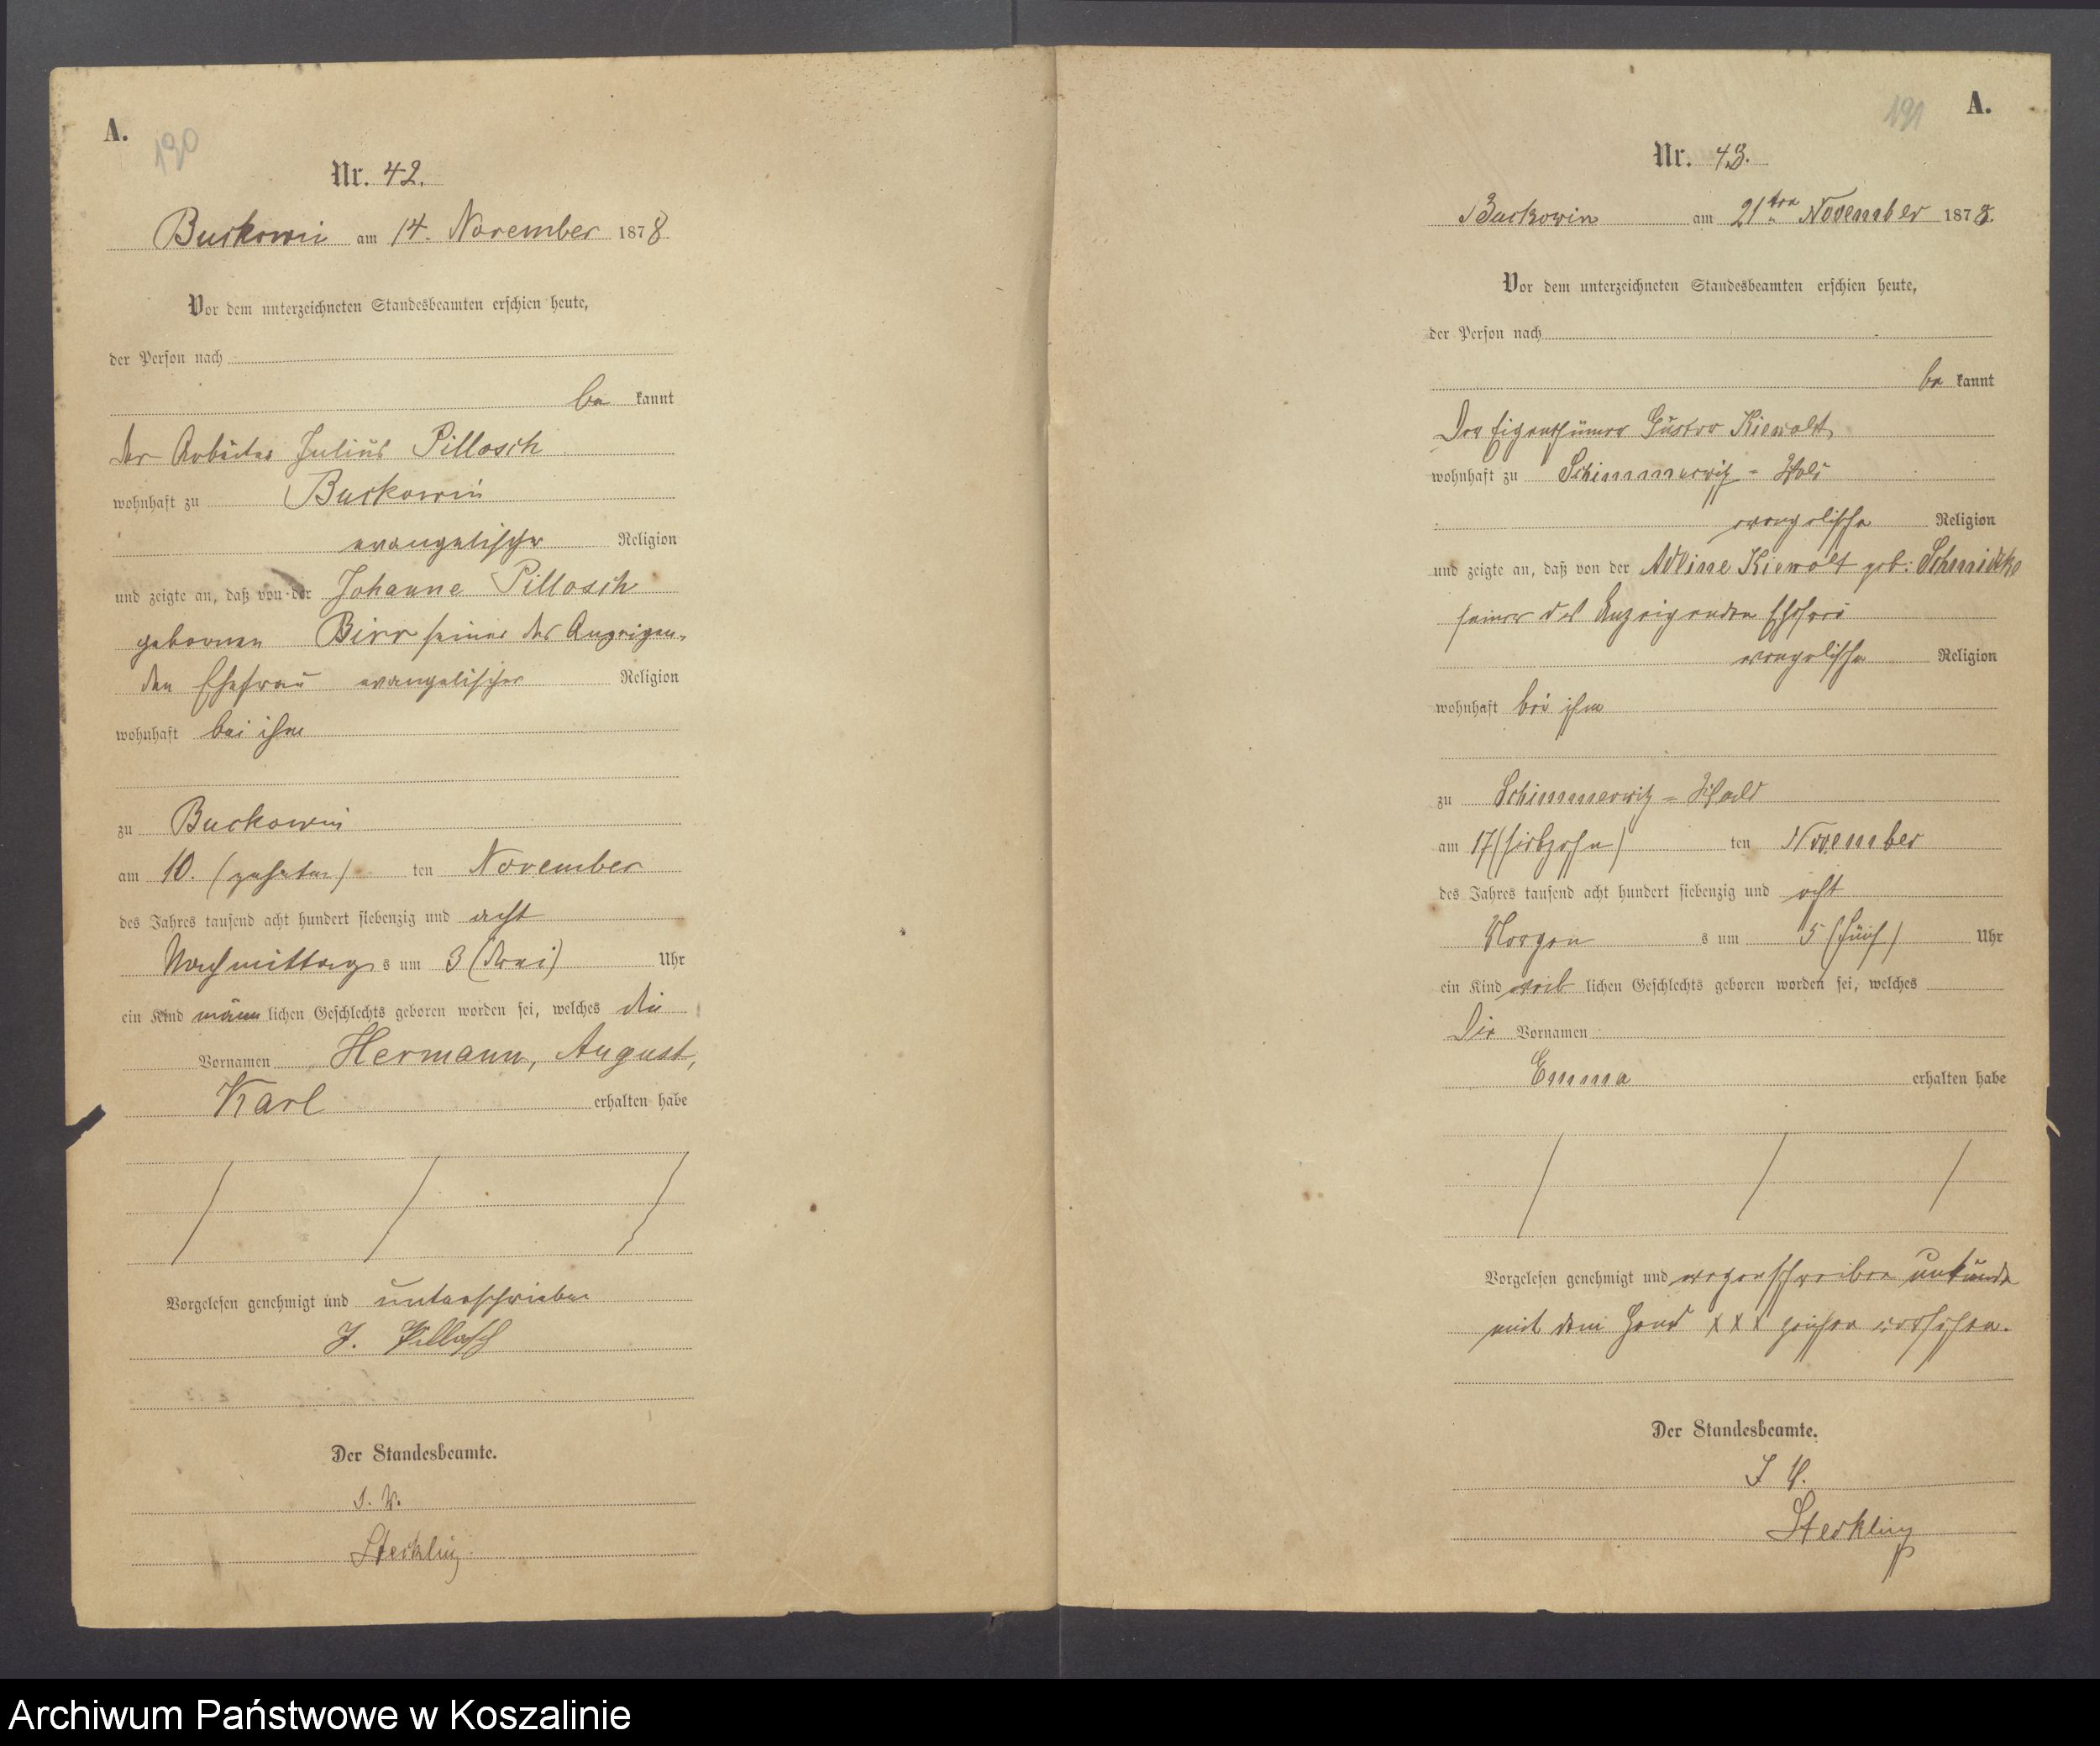 A.
190
Nr. 42.
Buckowin am 14. November 1878.
Vor dem unterzeichneten Standesbeamten erschien heute,
der Person nach
be kannt
der Arbeiter Julius Pillasch
wohnhaft zu Buckowin
evangelischer Religion
und zeigte an, daß von der Johanne Pillasch
geborenen Birr seiner des Anzeigen-
den Ehefrau evangelischer Religion
wohnhaft bei ihm
zu Buckowin
am 10. (zehnten) ten November
des Jahres tausend acht hundert siebenzig und acht
Nachmittag s um 3 (drei) Uhr
ein Kind männ lichen Geschlechts geboren worden sei, welches die
Vornamen Hermann, August,
Karl erhalten habe
Vorgelesen genehmigt und unterschrieben
J. Pillasch
Der Standesbeamte.
I. V.
Steckling
A.
191
Nr. 43.
Buckowin am 21ten November 1878.
Vor dem unterzeichneten Standesbeamten erschien heute,
der Person nach
be kannt
Der Eigenthümer Gustav Kiewalt
wohnhaft zu Schimmerwitz = Wald
evangelische Religion
und zeigte an, daß von der Adline Kiewalt geb: Schmidtke
seiner des Anzeigenden Ehefrau
evangelische Religion
wohnhaft bei ihm
zu Schimmerwitz = Wald
am 17 (siebzehn) ten November
des Jahres tausend acht hundert siebenzig und acht
Morgen s um 5 (fünf) Uhr
ein Kind weib lichen Geschlechts geboren worden sei, welches
Die Vornamen
Emma erhalten habe
Vorgelesen genehmigt und wegen schreiben unkunde
mit dem Hand x x x zeichen versehen.
Der Standesbeamte.
I V.
Steckling
Archiwum Państwowe w Koszalinie